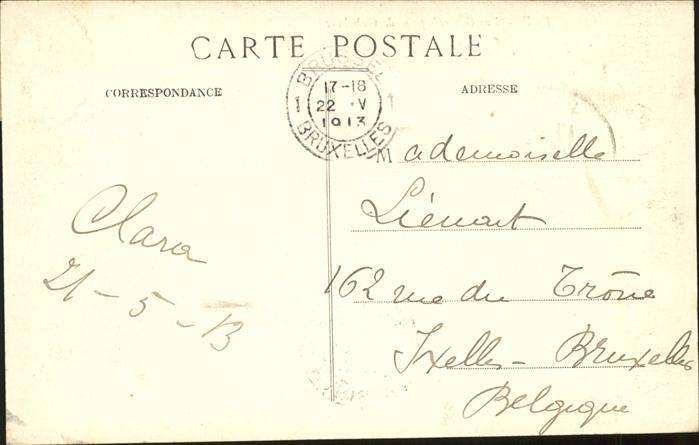 CARTE POSTALE
CORRESPONDANCE
ADRESSE
BRUSSEL
1 17-18 1
22 V
1913
BRUXELLES
Mademoiselle
Liénart
162 rue du Trône
Ixelles - Bruxelles
Belgique
Clara
21 - 5 - 13